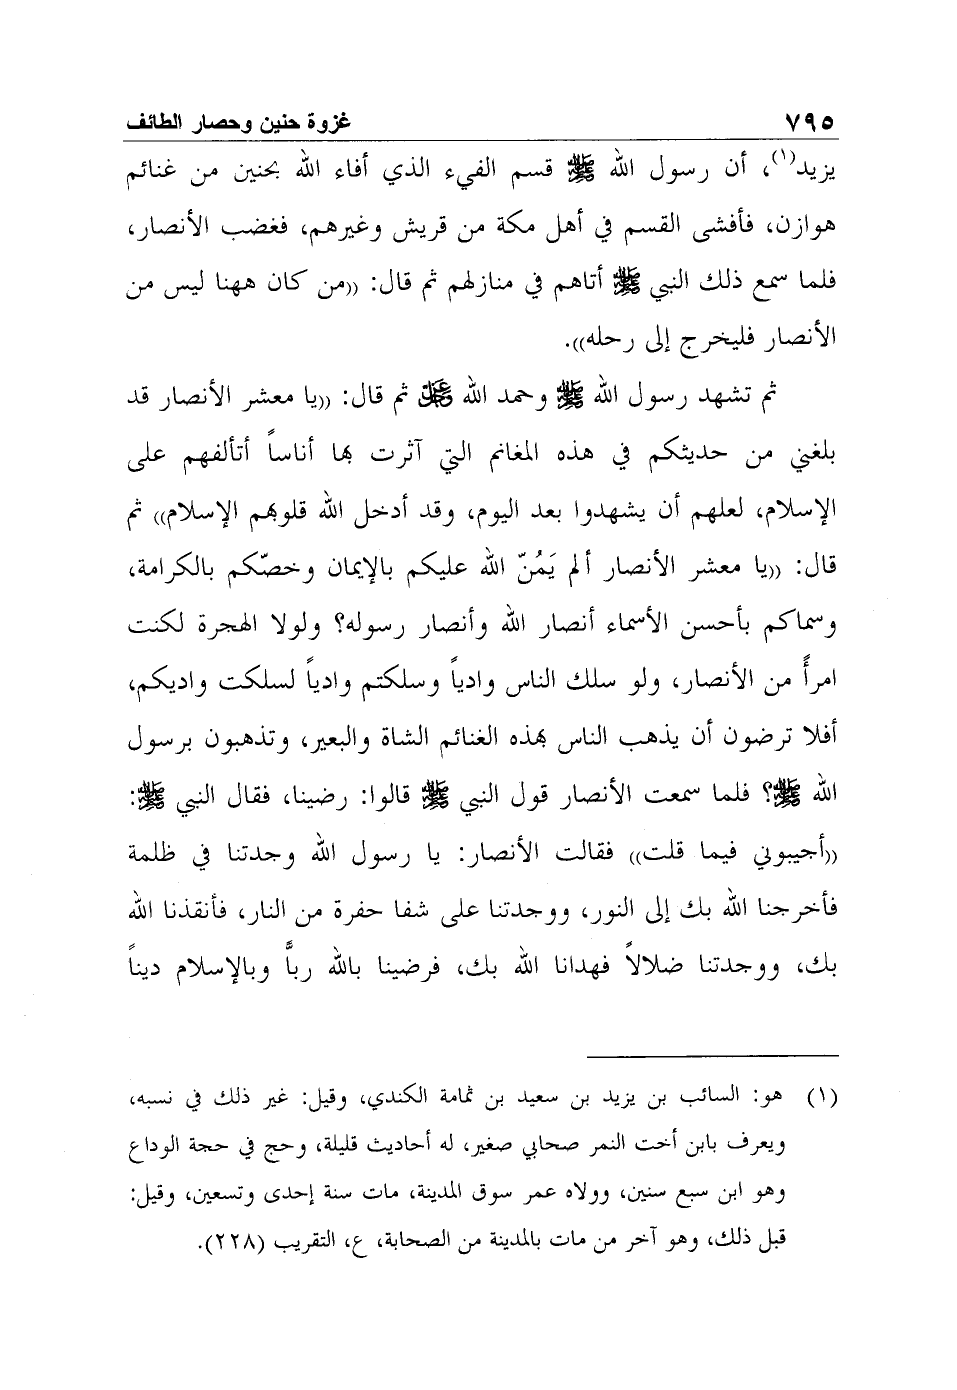 ٧٩٥ غزوة حنين وحصار الطائف
يزيد(١)، أن رسول الله ﷺ قسم الفيء الذي أفاء الله بحنين من غنائم
هوازن، فأفشى القسم في أهل مكة من قريش وغيرهم، فغضب الأنصار،
فلما سمع ذلك النبي ﷺ أتاهم في منازلهم ثم قال: ((من كان ههنا ليس من
الأنصار فليخرج إلى رحله)).
ثم تشهد رسول الله ﷺ وحمد الله ﷿ ثم قال: ((يا معشر الأنصار قد
بلغني من حديثكم في هذه المغانم التي آثرت بها أناساً أتألفهم على
الإسلام، لعلهم أن يشهدوا بعد اليوم، وقد أدخل الله قلوبهم الإسلام)) ثم
قال: ((يا معشر الأنصار ألم يَمُنّ الله عليكم بالإيمان وخصّكم بالكرامة،
وسماكم بأحسن الأسماء أنصار الله وأنصار رسوله؟ ولولا الهجرة لكنت
امرأً من الأنصار، ولو سلك الناس وادياً وسلكتم وادياً لسلكت واديكم،
أفلا ترضون أن يذهب الناس بهذه الغنائم الشاة والبعير، وتذهبون برسول
الله ﷺ؟ فلما سمعت الأنصار قول النبي ﷺ قالوا: رضينا، فقال النبي ﷺ:
((أجيبوني فيما قلت)) فقالت الأنصار: يا رسول الله وجدتنا في ظلمة
فأخرجنا الله بك إلى النور، ووجدتنا على شفا حفرة من النار، فأنقذنا الله
بك، ووجدتنا ضلالاً فهدانا الله بك، فرضينا بالله ربًّا وبالإسلام ديناً
(١) هو: السائب بن يزيد بن سعيد بن ثمامة الكندي، وقيل: غير ذلك في نسبه،
ويعرف بابن أخت النمر صحابي صغير، له أحاديث قليلة، وحج في حجة الوداع
وهو ابن سبع سنين، وولاه عمر سوق المدينة، مات سنة إحدى وتسعين، وقيل:
قبل ذلك، وهو آخر من مات بالمدينة من الصحابة، ع، التقريب (٢٢٨).